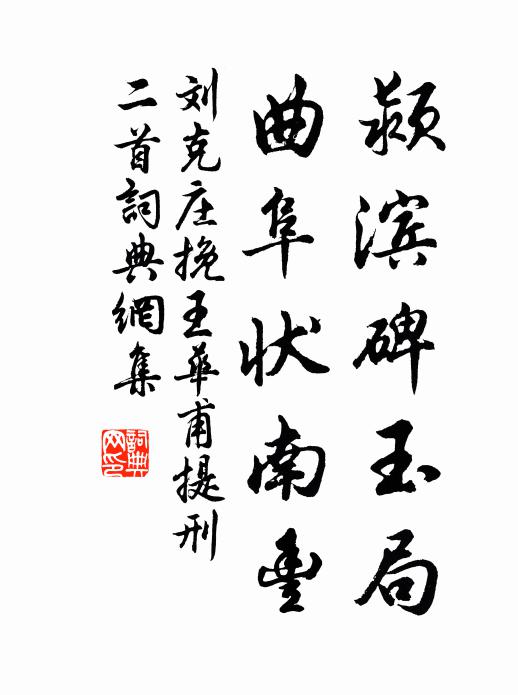 颍滨碑玉局
曲阜状南豊
刘克庄挽王華甫提刑
二首詞典網集
詞典
网印